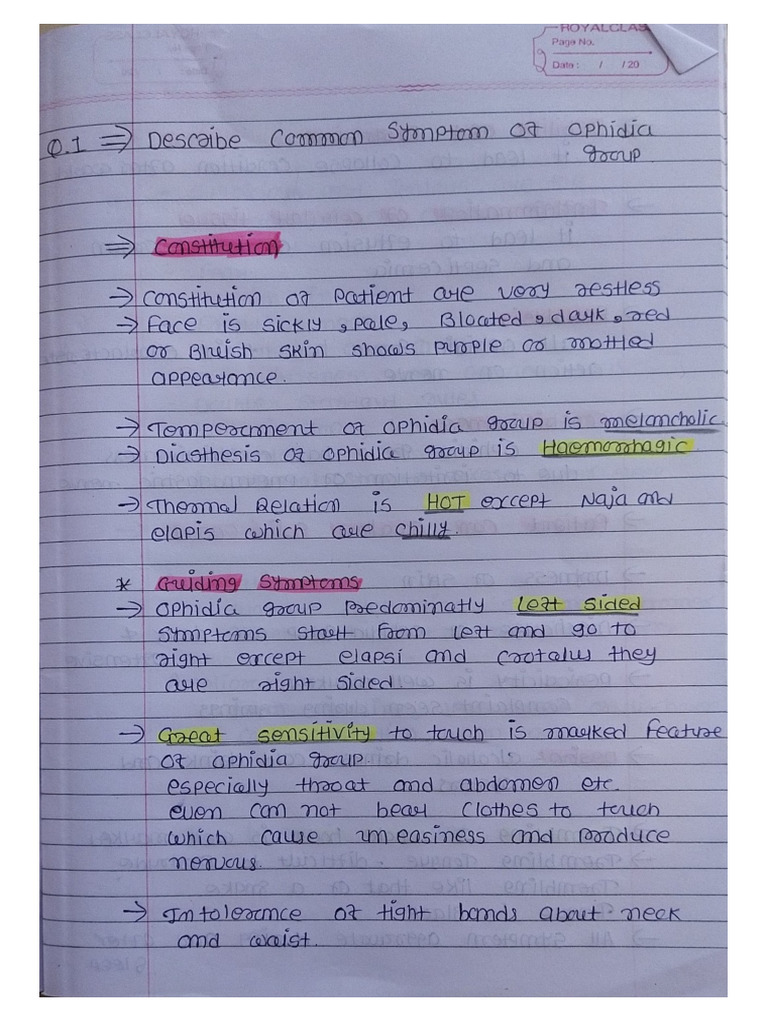 ROYALCLAS
Page No.
Date : / /20
Q.1 ⇒ Describe common symptom of ophidia
group
⇒ Constitution
→ constitution of patient are very restless
→ Face is sickly, pale, Bloated, dark, red
or Bluish skin shows purple or mottled
appearance.
→ Temperment of ophidia group is melancholic
→ Diasthesis of ophidia group is Haemorrhagic
→ Thermal Relation is HOT except Naja and
elapis which are chilly.
* Guiding Symptoms
→ Ophidia group predominatly left sided
symptoms start from left and go to
right except elapsi and crotalus they
are right sided.
→ Great sensitivity to touch is marked feature
of ophidia group
especially throat and abdomen etc.
even can not bear clothes to touch
which cause uneasiness and produce
nervous.
→ Intolerance of tight bands about neck
and waist.